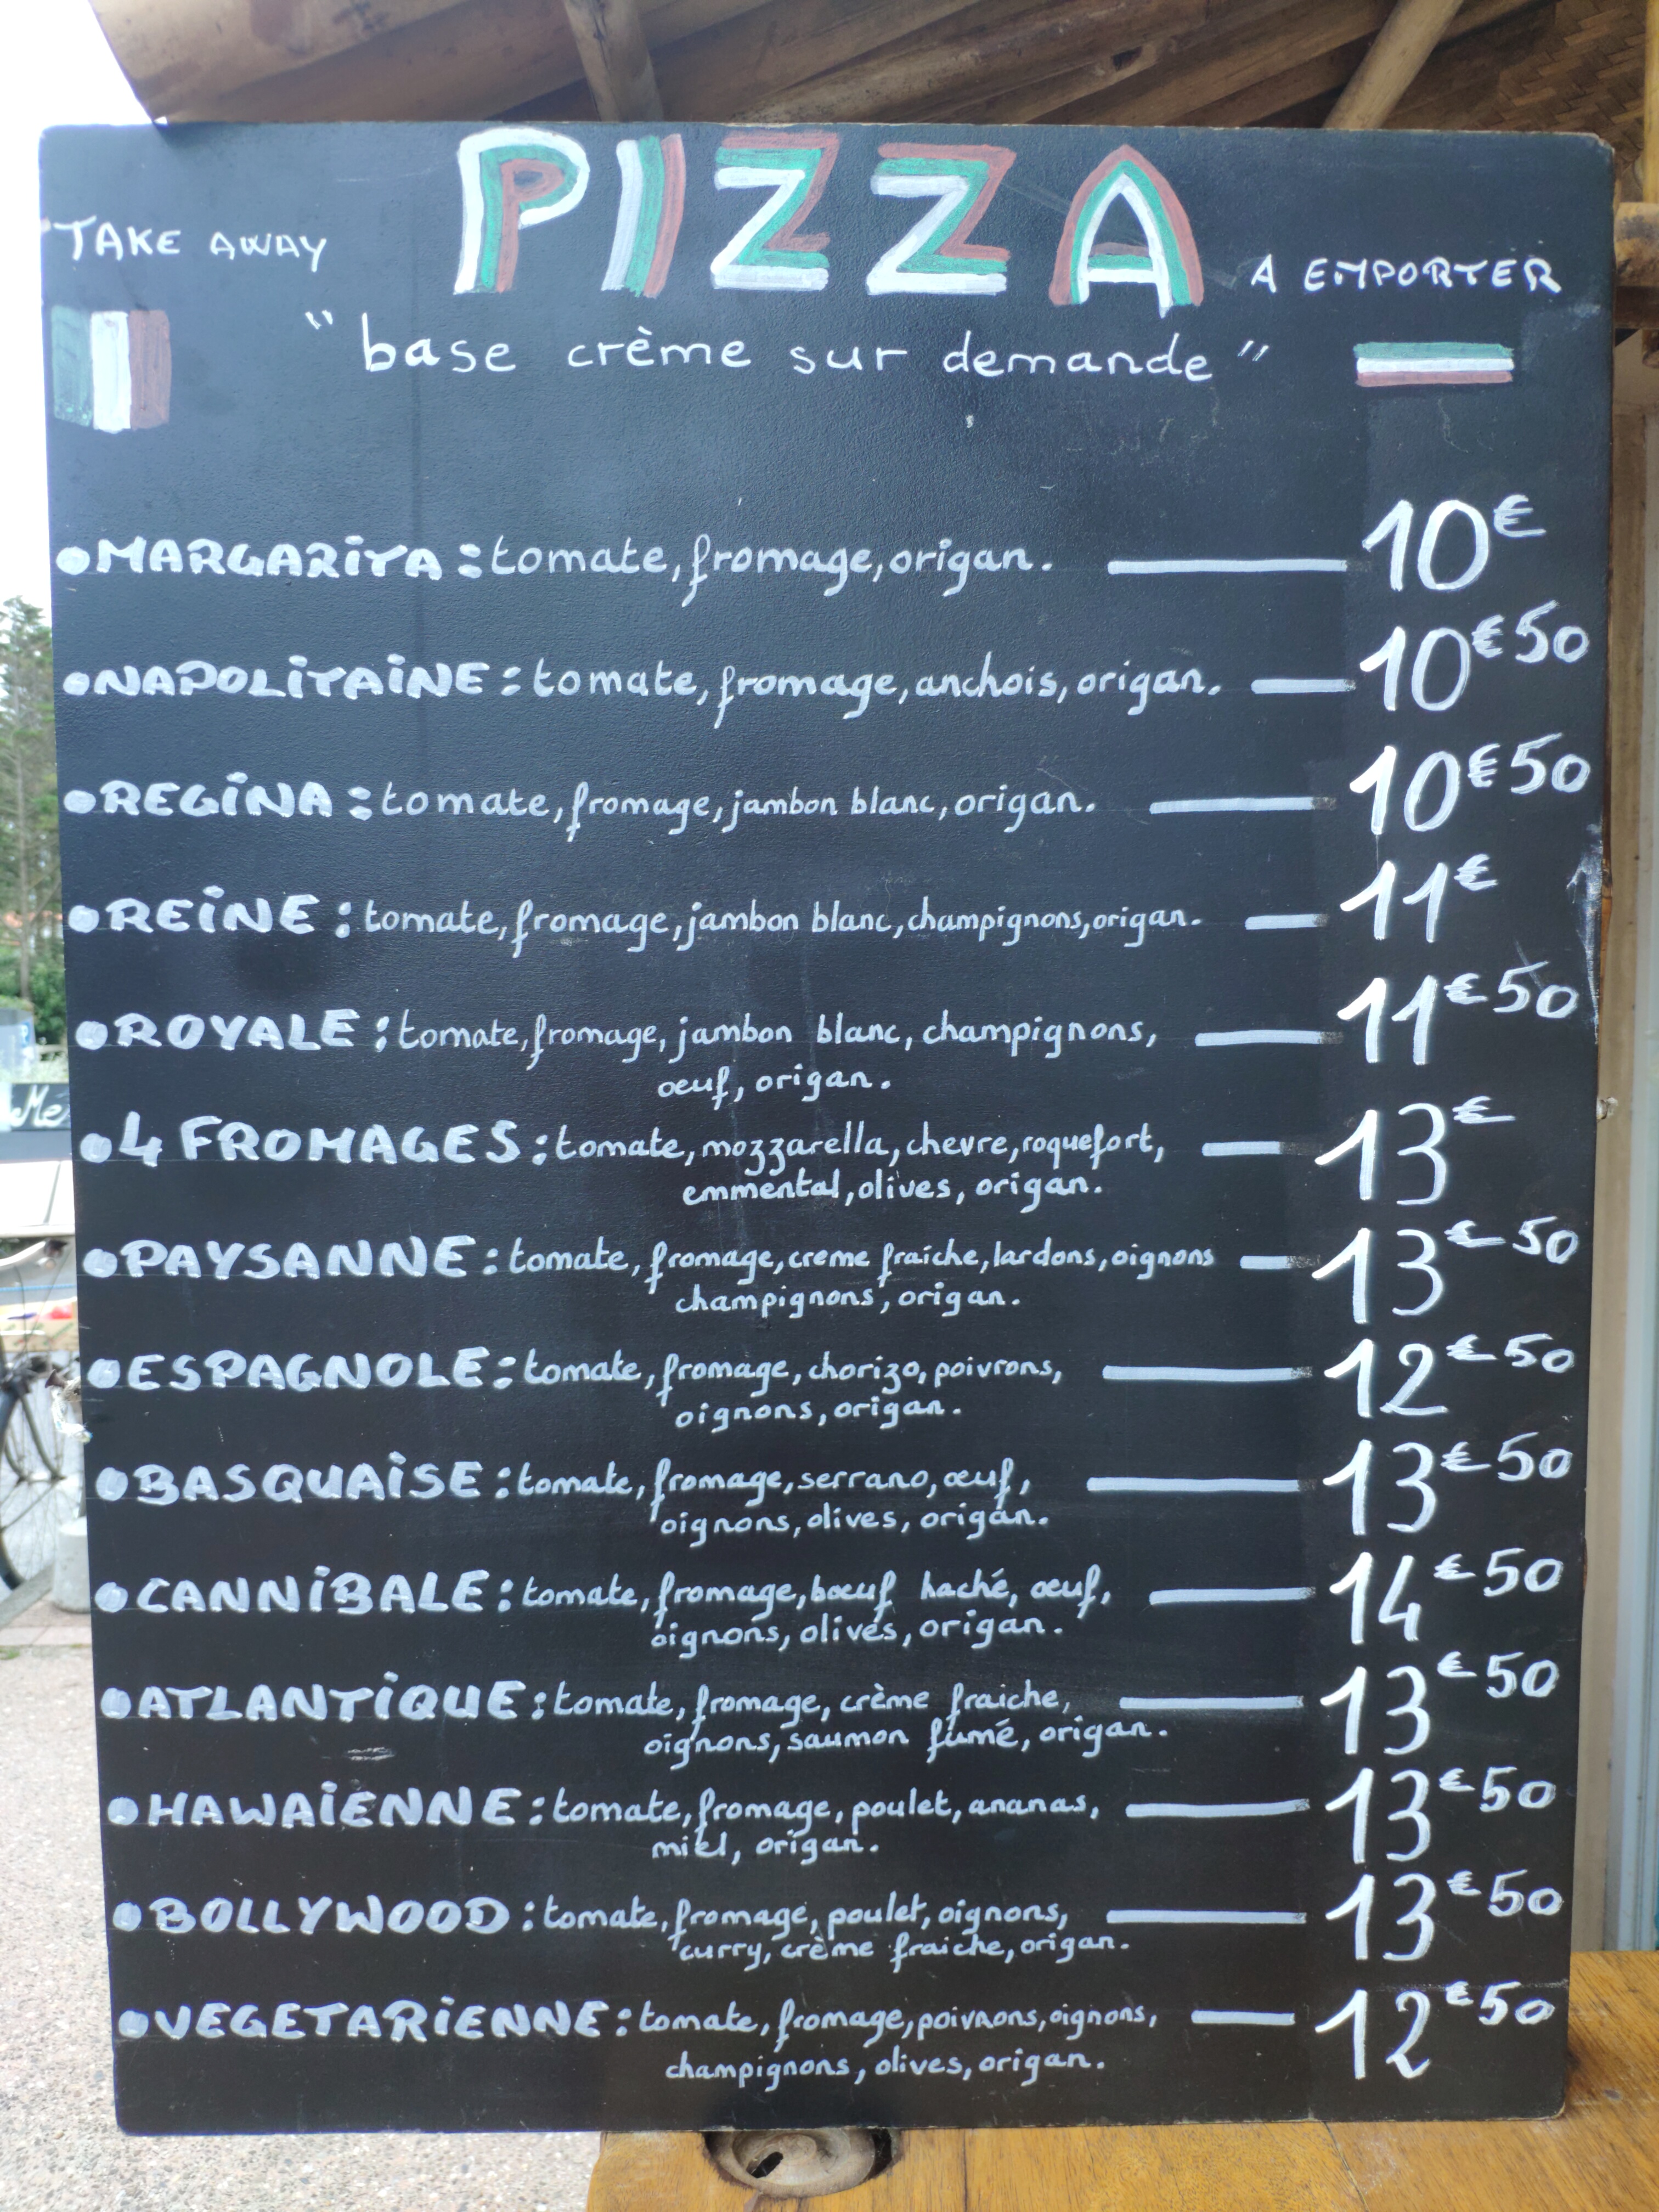 PIZZA
TAKE AWAY
A EMPORTER
"base crème sur demande"
•MARGARiTA : tomate, fromage, origan. — 10€
•NAPOLiTAiNE : tomate, fromage, anchois, origan. — 10€50
•REGiNA : tomate, fromage, jambon blanc, origan. — 10€50
•REiNE : tomate, fromage, jambon blanc, champignons, origan. — 11€
•ROYALE : tomate, fromage, jambon blanc, champignons, — 11€50
œuf, origan.
•4 FROMAGES : tomate, mozzarella, chevre, roquefort, — 13€
emmental, olives, origan.
•PAYSANNE : tomate, fromage, creme fraîche, lardons, oignons — 13€50
champignons, origan.
•ESPAGNOLE : tomate, fromage, chorizo, poivrons, — 12€50
oignons, origan.
•BASQUAiSE : tomate, fromage, serrano, œuf, — 13€50
oignons, olives, origan.
•CANNiBALE : tomate, fromage, bœuf haché, œuf, — 14€50
oignons, olives, origan.
•ATLANTiQUE : tomate, fromage, crème fraiche, — 13€50
oignons, saumon fumé, origan.
•HAWAiENNE : tomate, fromage, poulet, ananas, — 13€50
miel, origan.
•BOLLYWOOD : tomate, fromage, poulet, oignons, — 13€50
curry, crème fraiche, origan.
•VEGETARiENNE : tomate, fromage, poivrons, oignons, — 12€50
champignons, olives, origan.